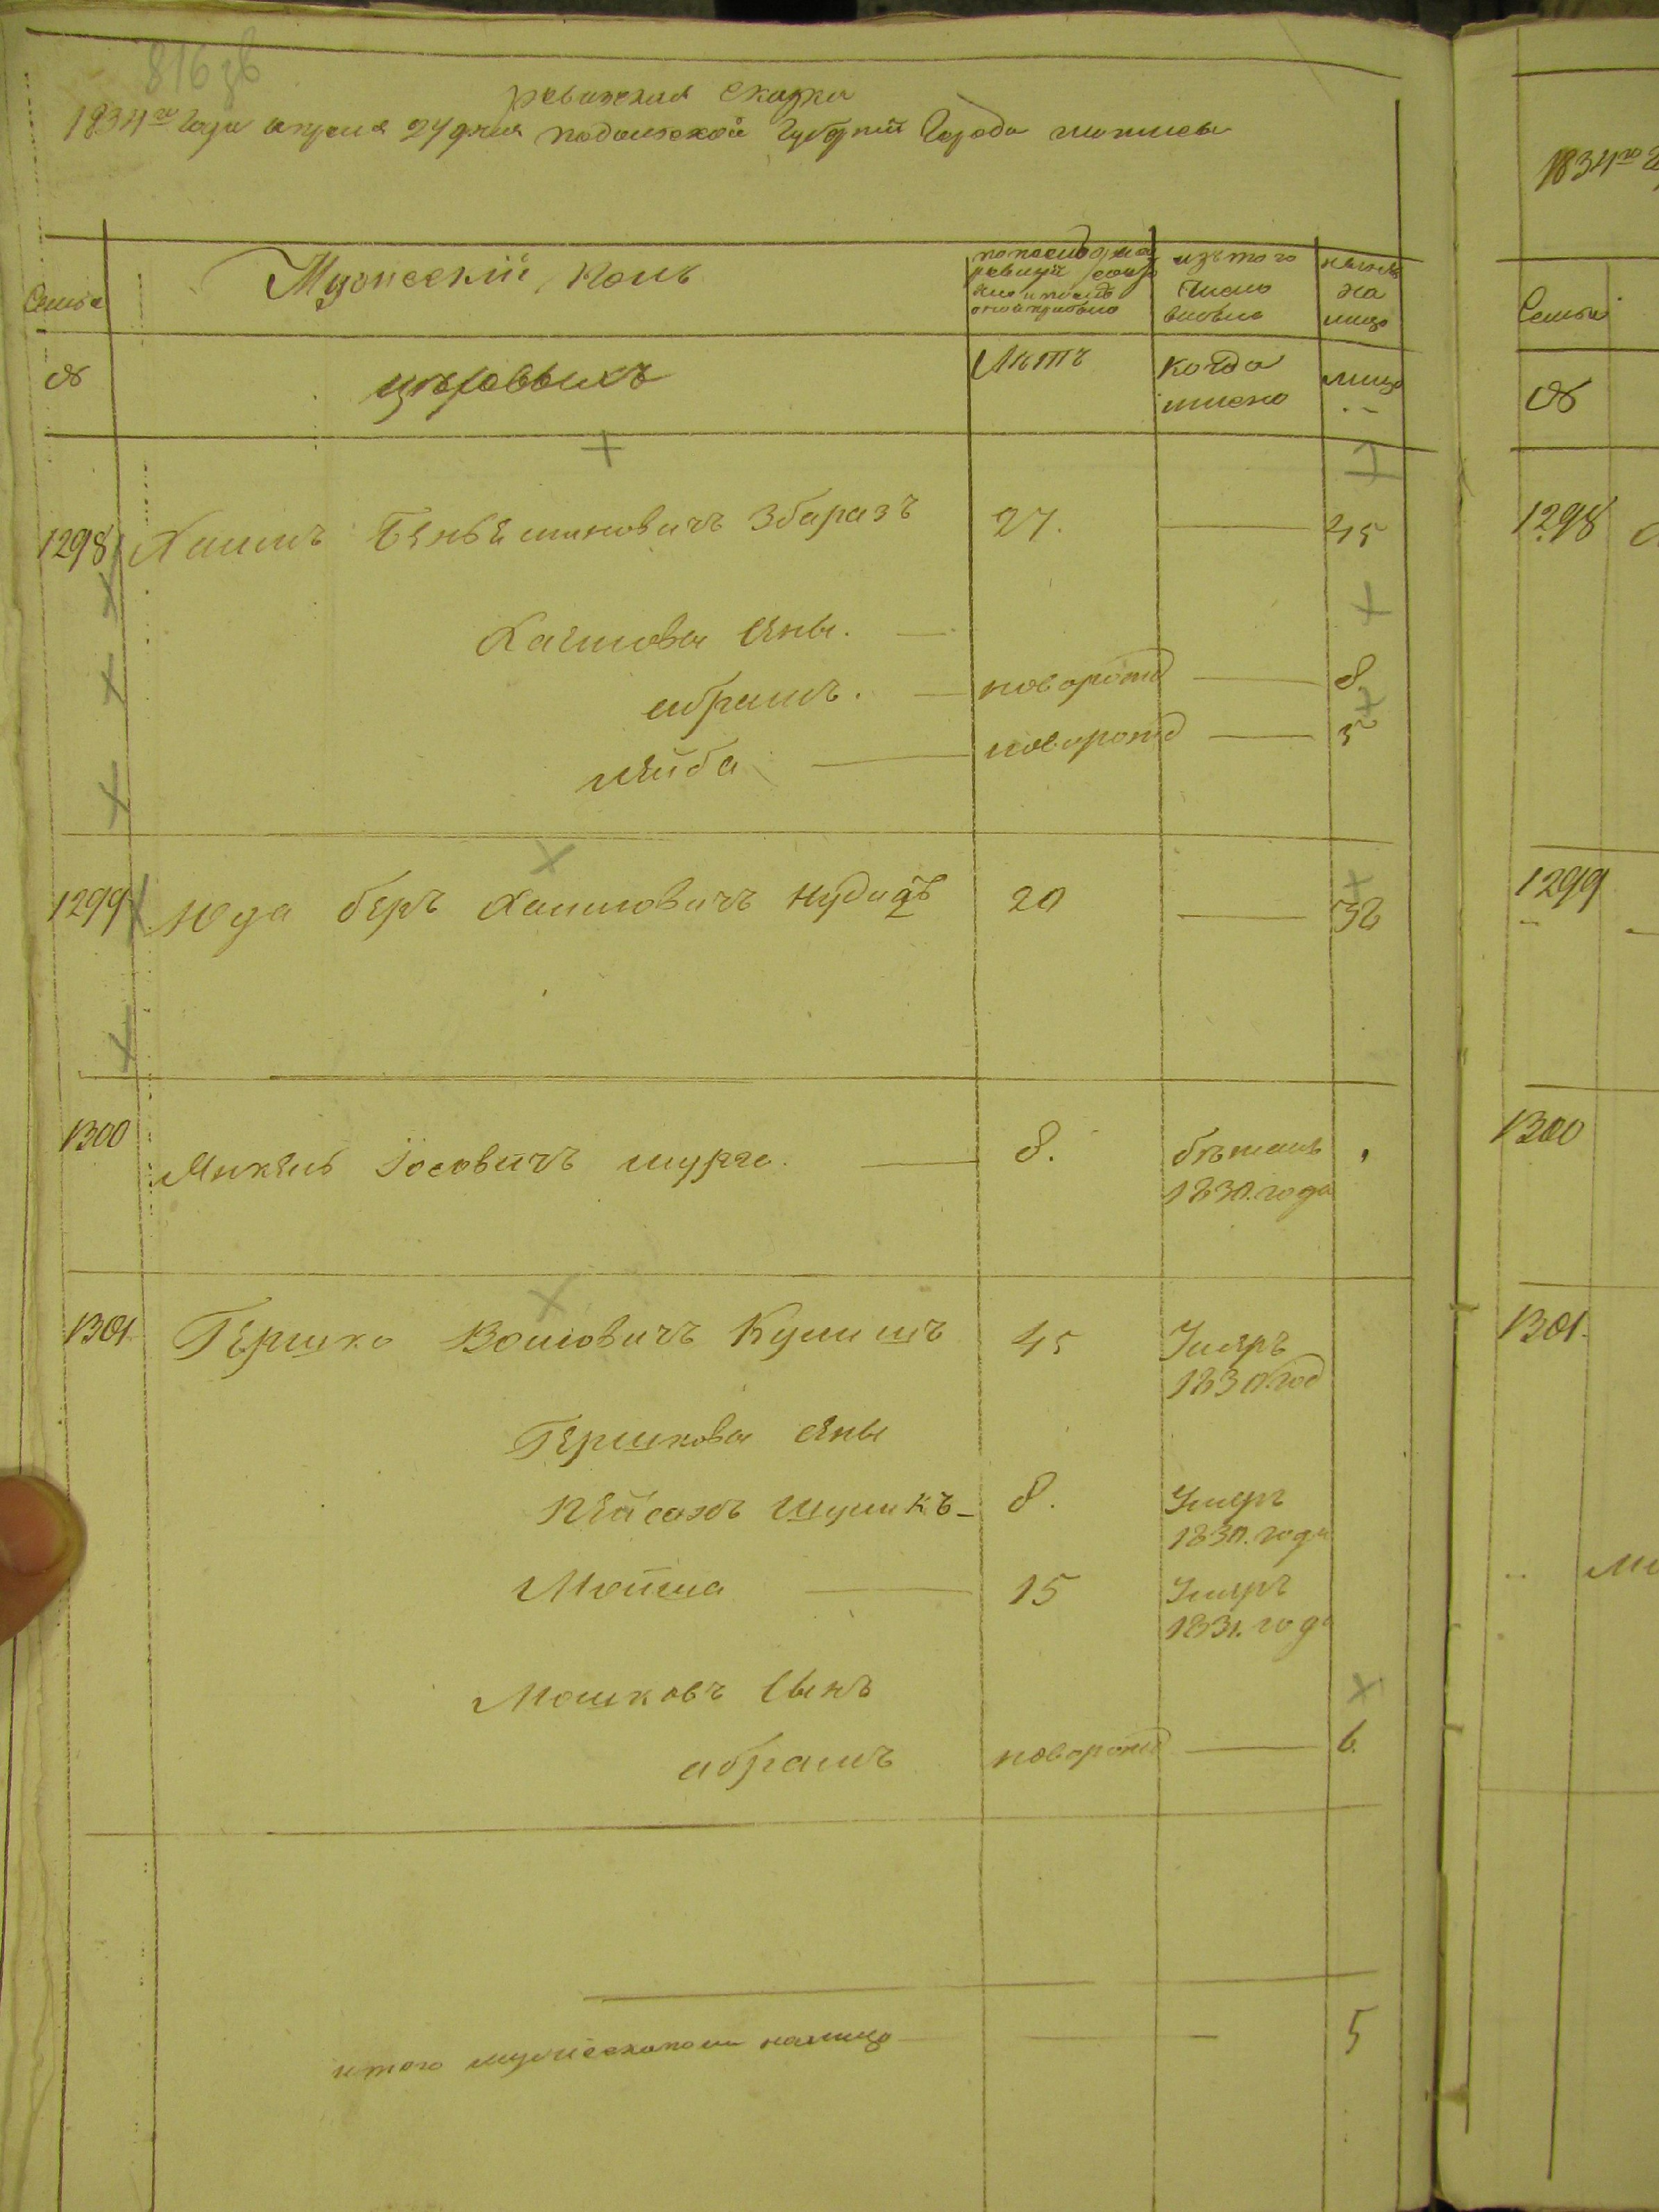 816 зв
ревизская сказка
1834го Года апреля 24 дня подольской Губернии Города
Семьи
Мужеский полъ
изъ того
числа
выбыло
ныне
на
лицо
№
Лѣтъ
когда
имено
лицо
1298 Хаимъ Беньяминовичъ Збаразъ 27. 45
Хаимовы Сыны.
абрамъ. новорожд 8
лейба новорожд 5
1299 Юда беръ Хаимовичъ 20 38
1300 Янкель Іосовичъ 8. бѣжалъ
1830. года
1301. Гершко Волковичъ 45 Умеръ
1830. год
Гершковы Сыны
Пейсахъ Шулимъ 8. Умеръ
1830. года
Мошка 15 Умеръ
1831. года
Мошковъ Сынъ
абрамъ новорожд 6.
итого мужеска пола налицо 5
1834го
Семьи
№
1298
1299
1300
1301.